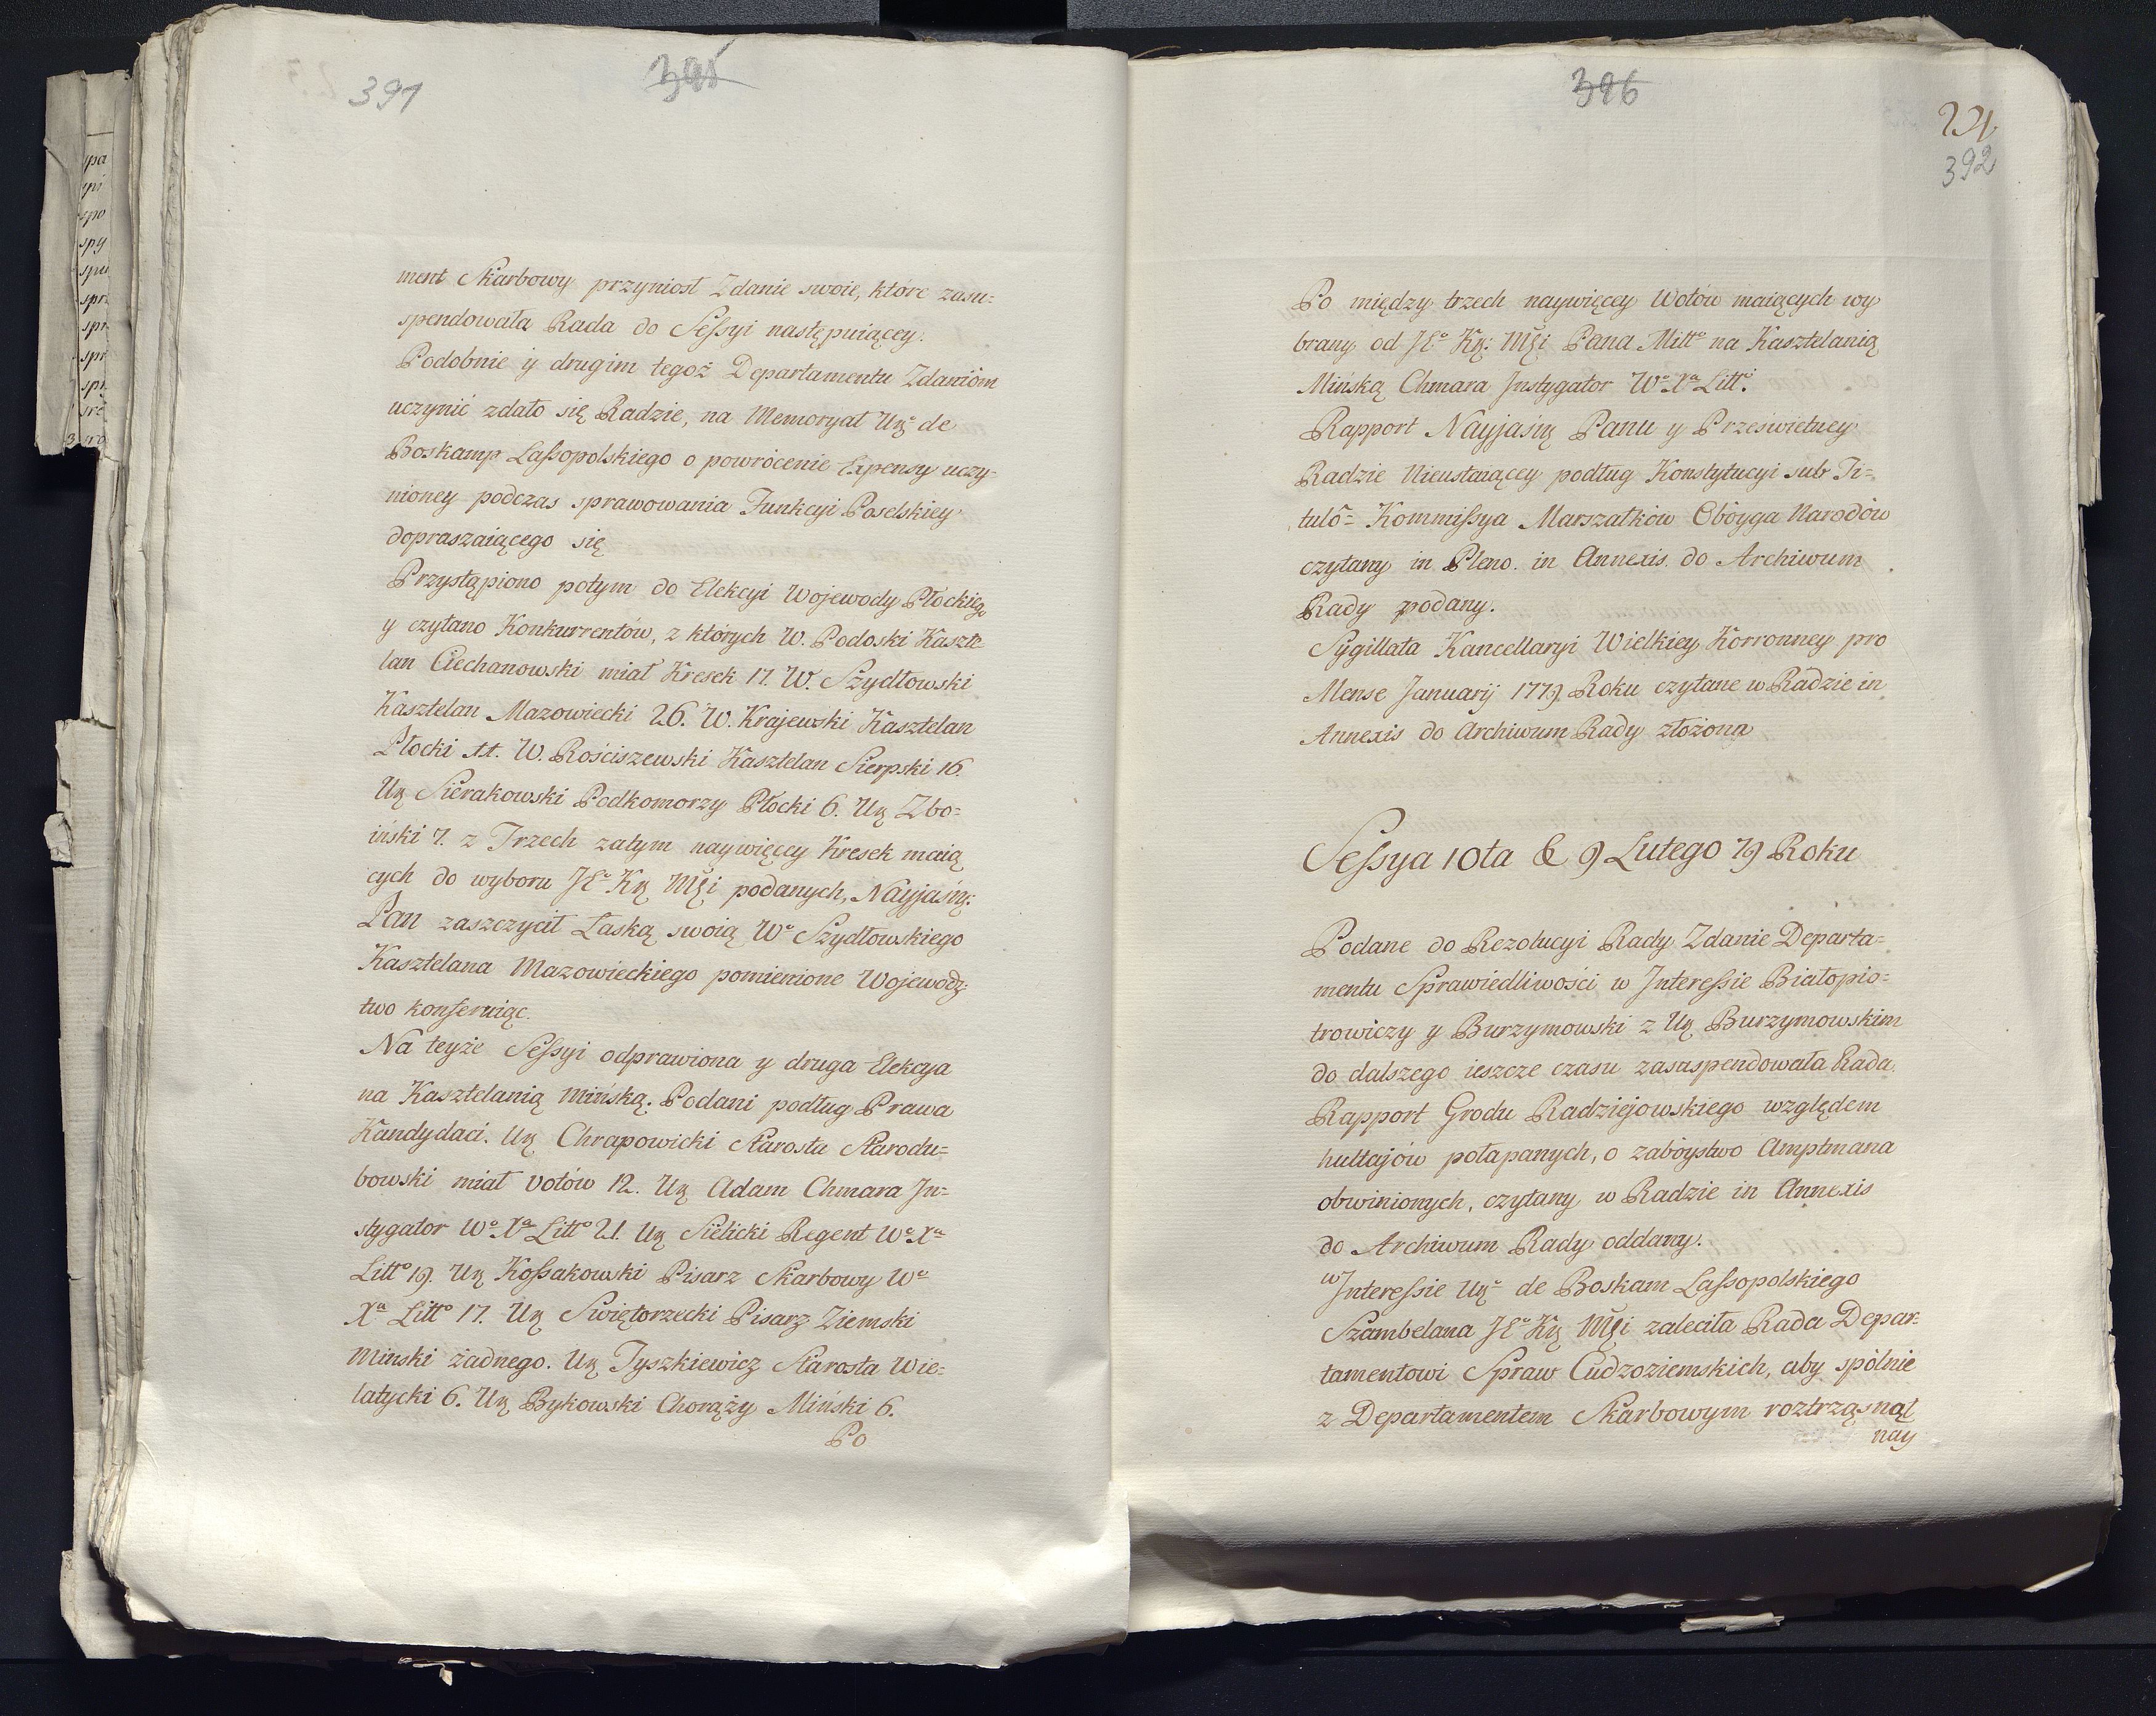 391
395
ment Skarbowy przyniosł Zdanie swoie, które zasu=
spendowała Rada do Seſsyi następuiącey.
Podobnie y drugim tegoż Departamentu Zdaniom
uczynić zdało się Radzie, na Memoryał Urᵒ de
Boskamp Laſsopolskiego o powrócenie Expensy uczy=
nioney podczas sprawowania Funkcyi Poselskiey
dopraszaiącego się
Przystąpiono potym do Elekcyi Wojewody Płockiego
y czytano Konkurrentów, z których W. Podoski Kaszte
lan Ciechanowski miał Kresek 17. W. Szydłowski
Kasztelan Mazowiecki 26. W. Krajewski Kasztelan
Płocki 11. W. Rościszewski Kasztelan Sierpski 16.
Ur Sierakowski Podkomorzy Płocki 6. Ur Zbo=
iński 7. z Trzech zatym naywięcey Kresek maią
cych do wyboru JEᵒ Kr Mści podanych, Nayjaśn:
Pan zaszczycił Laską swoią Wᵒ Szydłowskiego
Kasztelana Mazowieckiego pomienione Wojewodz=
two konferuiąc.
Na teyże Seſsyi odprawiona y druga Elekcya
na Kasztelanią Mińską. Podani podług Prawa
Kandydaci. Ur Chrapowicki Starosta Starodu=
bowski miał votów 12. Ur Adam Chmara In=
stygator Wᵒ Xᵃ Littᵒ 21. Ur Sielicki Regent Wᵒ Xᵃ
Littᵒ 19. Ur Koſsakowski Pisarz Skarbowy Wᵒ
Xᵃ Littᵒ 17. Ur Swiętorzecki Pisarz Ziemski
Minski żadnego. Ur Tyszkiewicz Starosta Wie=
latycki 6. Ur Bykowski Chorąży Miński 6.
Po
396
392
Po między trzech naywięcey Wotów maiących wy
brany od JEᵒ Kr: Mści Pana Miłłᵒ na Kasztelanią
Mińską Chmara Instygator Wᵒ Xᵃ Littᵒ.
Rapport Nayjaśn Panu y Prześwietney
Radzie Nieustaiącey podług Konstytucyi sub Ti=
tulô= Kommiſsya Marszałków Oboyga Narodów
czytany in Pleno. in Annexis. do Archiwum
Rady podany.
Sygillata Kancellaryi Wielkiey Korronney pro
Mense Januarij 1779. Roku czytane w Radzie in
Annexis do Archiwum Rady złożona
Seſsya 10ta & 9 Lutego 79 Roku
Podane do Rezolucyi Rady Zdanie Departa=
mentu Sprawiedliwości w Intereſsie Białopio=
trowiczy y Burzymowski z Ur Burzymowskim
do dalszego ieszcze czasu zasuspendowała Rada.
Rapport Grodu Radziejowskiego względem
hultajów połapanych, o zaboystwo Amptmana
obwinionych, czytany w Radzie in Annexis
do Archiwum Rady oddany.
w Intereſsie Urᵒ de Boskam Laſsopolskiego
Szambelana JEᵒ Kr Mści zaleciła Rada Depar=
tamentowi Spraw Cudzoziemskich, aby spólnie
z Departamentem Skarbowym roztrząsnął
nay